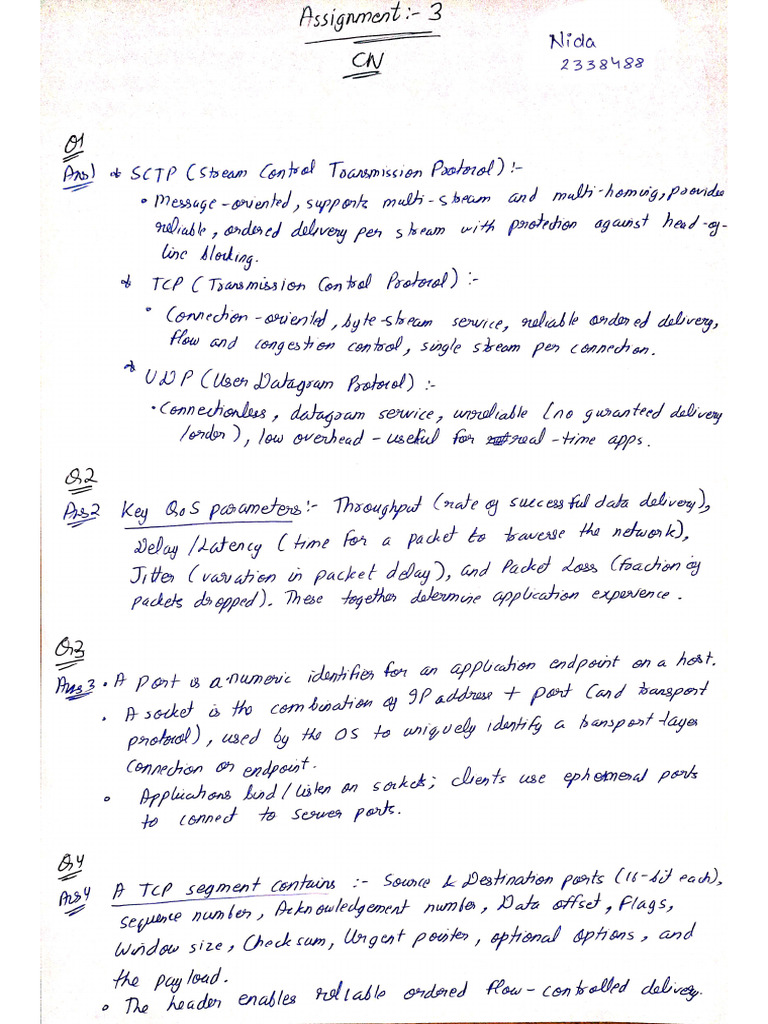 Assignment:- 3
CN
Nida
2338488
Q1
Ans1 * SCTP (Stream Control Transmission Protocol):-
• Message-oriented, supports multi-stream and multi-homing, provides
reliable, ordered delivery per stream with protection against head-of-
line blocking.
* TCP (Transmission Control Protocol):-
• Connection-oriented, byte-stream service, reliable ordered delivery,
flow and congestion control, single stream per connection.
* UDP (User Datagram Protocol):-
• Connectionless, datagram service, unreliable (no guranteed delivery
/order), low overhead - useful for real-time apps.
Q2
Ans2 Key QoS parameters:- Throughput (rate of successful data delivery),
Delay/Latency (time for a packet to traverse the network),
Jitter (variation in packet delay), and Packet Loss (fraction of
packets dropped). These together determine application experience.
Q3
Ans3 • A port is a numeric identifier for an application endpoint on a host.
• A socket is the combination of IP address + port (and transport
protocol), used by the OS to uniquely identify a transport-layer
connection or endpoint.
• Applications bind/listen on sockets; clients use ephemeral ports
to connect to server ports.
Q4
Ans4 A TCP segment contains :- Source & Destination ports (16-bit each),
sequence number, Acknowledgement number, Data offset, Flags,
Window size, Checksum, Urgent pointer, optional options, and
the payload.
• The header enables reliable ordered flow-controlled delivery.